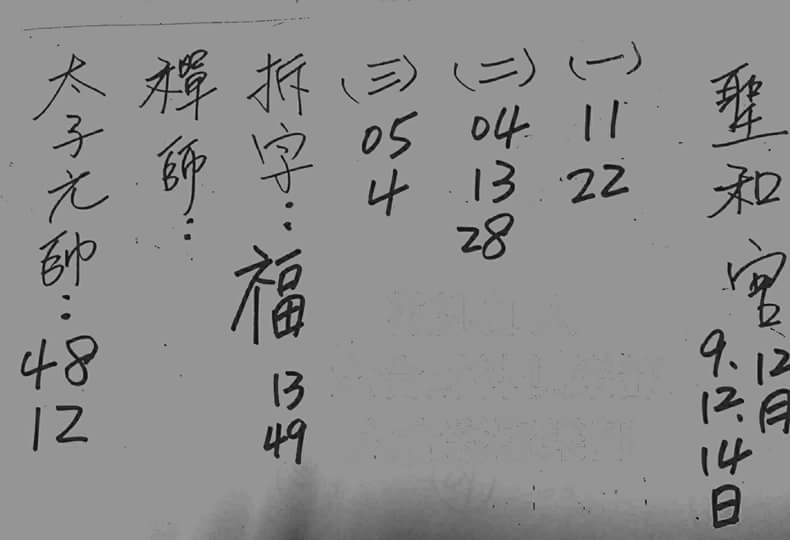 聖和宮
12月
9.12.14日
(一)
11
22
(二)
04
13
28
(三)
05
4
拆字：福
13
49
禪師：
太子元帥：
48
12